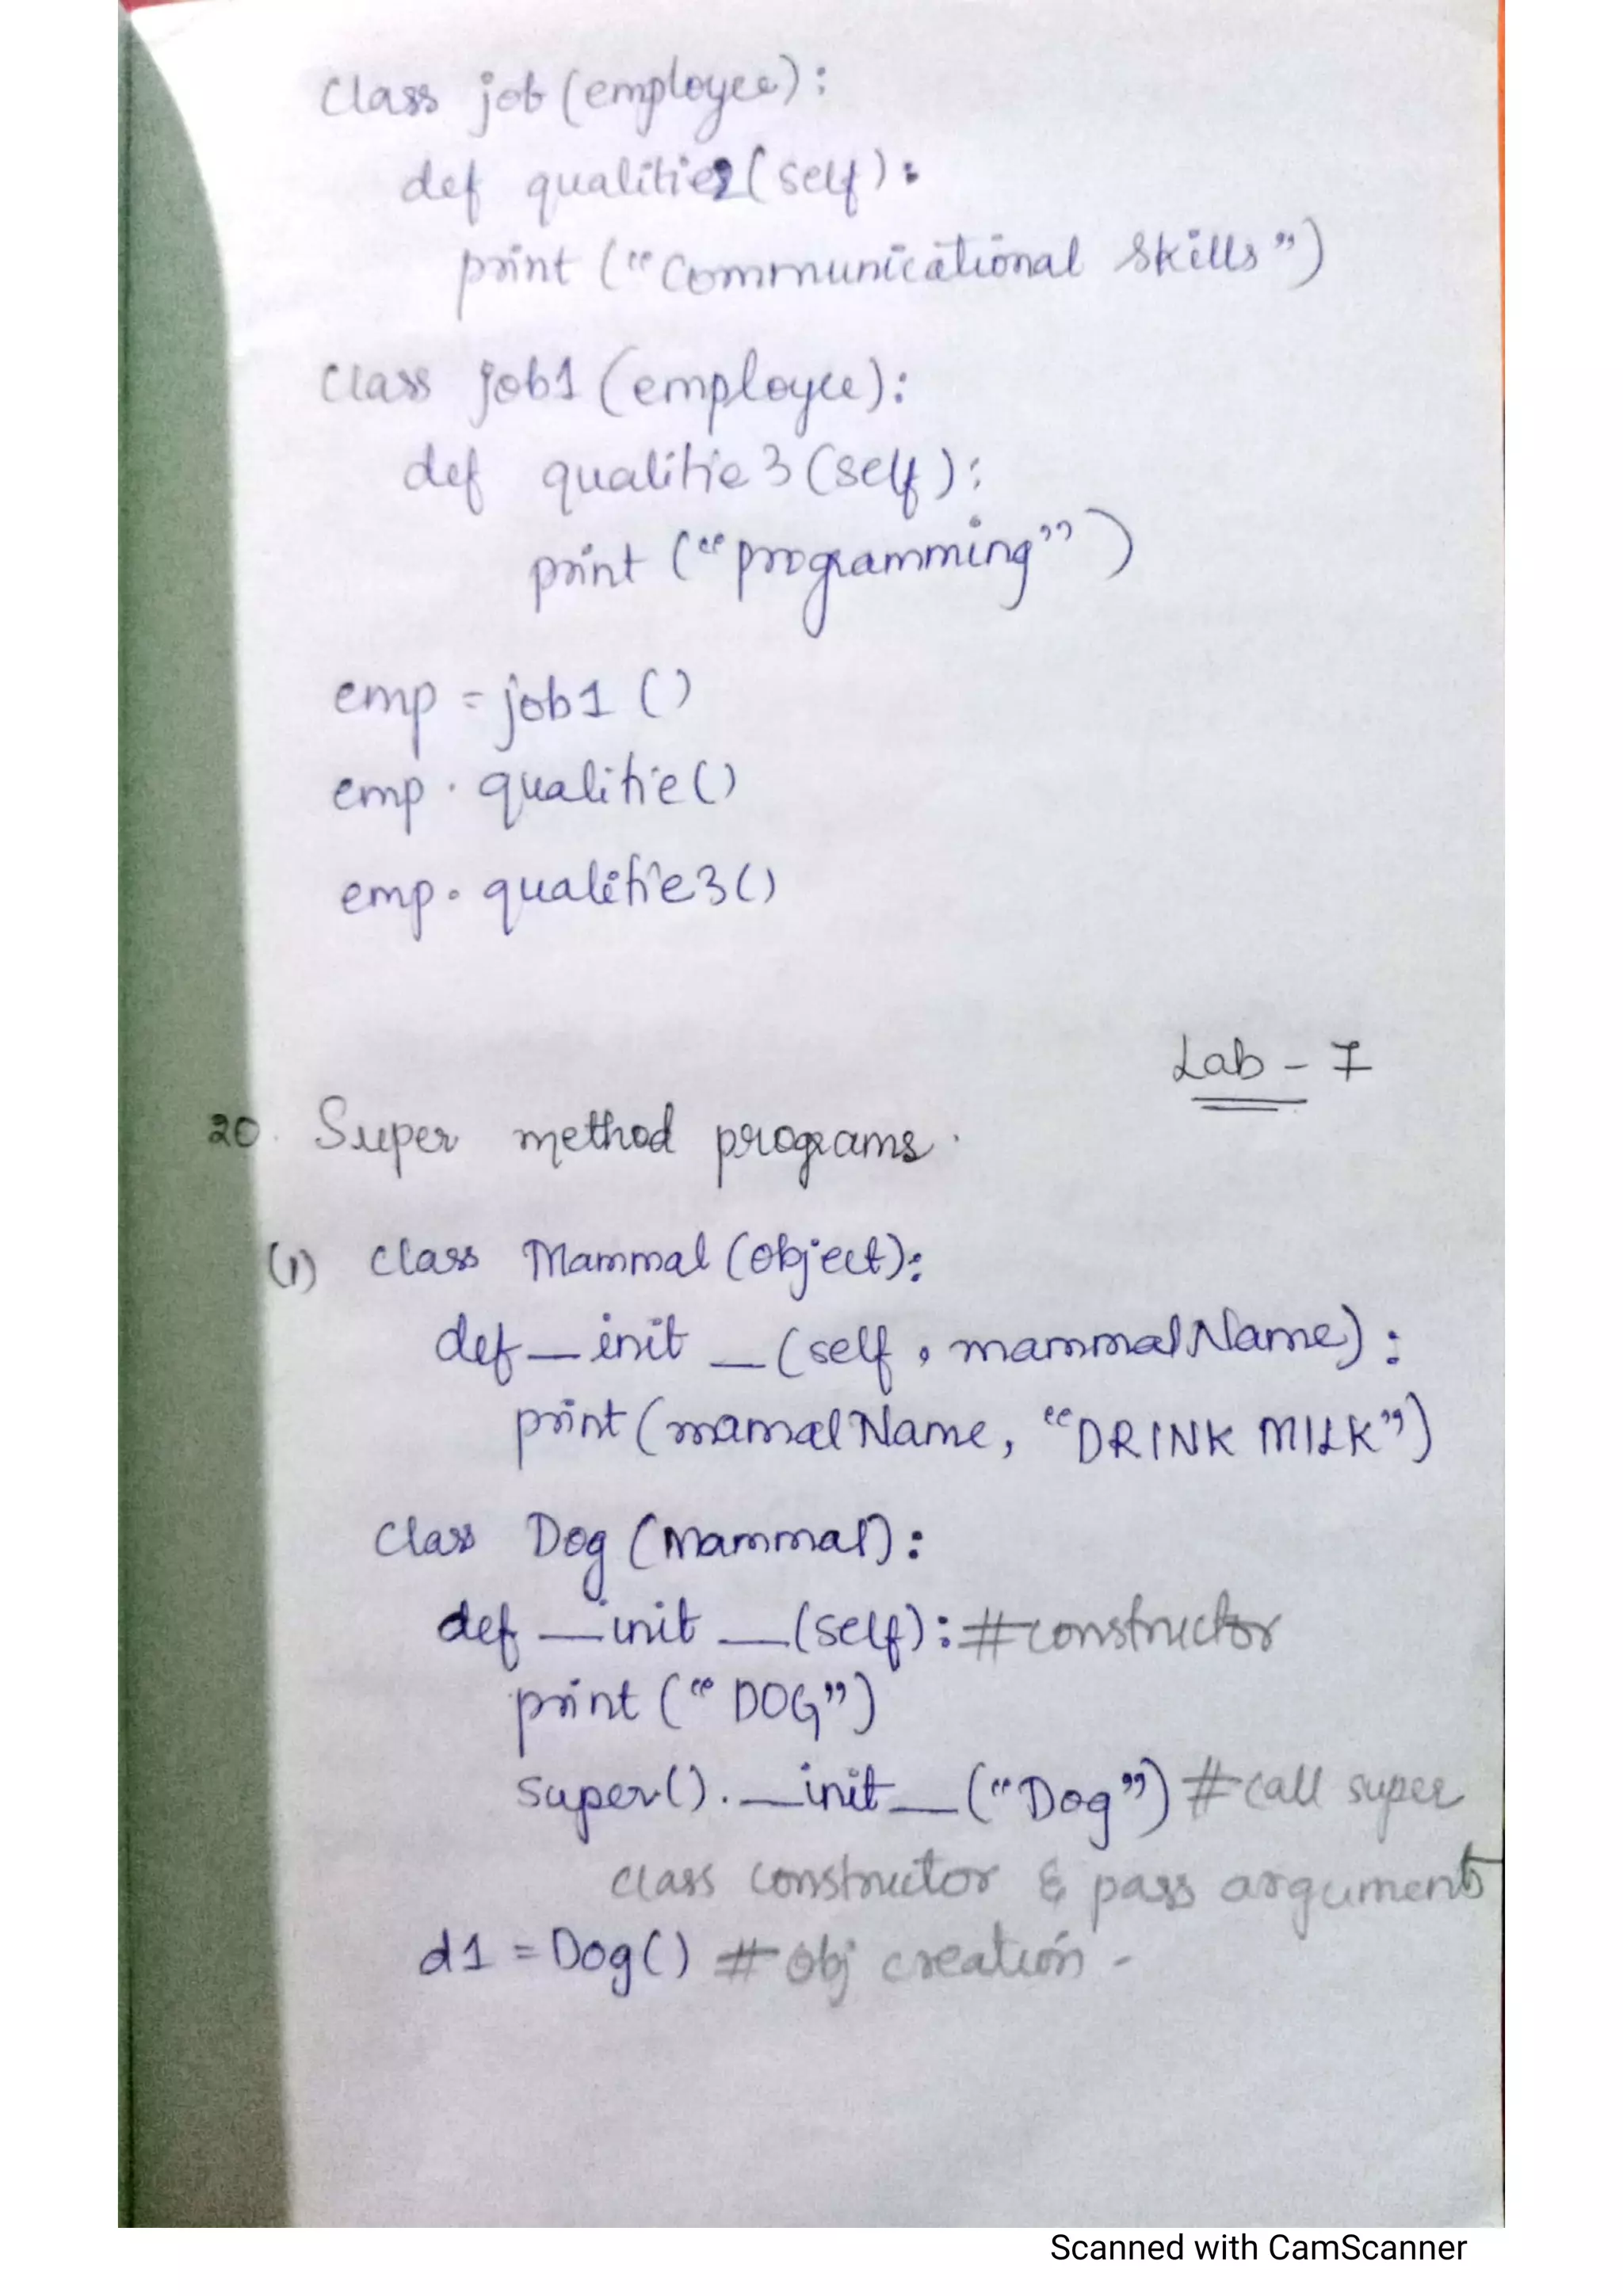 Class job (employee):
def qualitie2(self):
print ("Communicational Skills")
Class job1 (employee):
def qualitie3(self):
print ("programming")
emp = job1 ()
emp . qualitie()
emp . qualitie3()
Lab - 7
20. Super method programs.
(1) class Mammal (object):
def __init__(self, mammalName):
print (mamalName, "DRINK MILK")
Class Dog (Mammal):
def __init__(self): #constructor
print ("DOG")
super().__init__("Dog") #call super
class constructor & pass argument
d1 = Dog() # obj creation -
Scanned with CamScanner